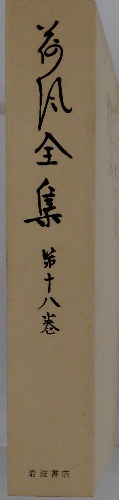 荷風全集
第十八巻
岩波書店